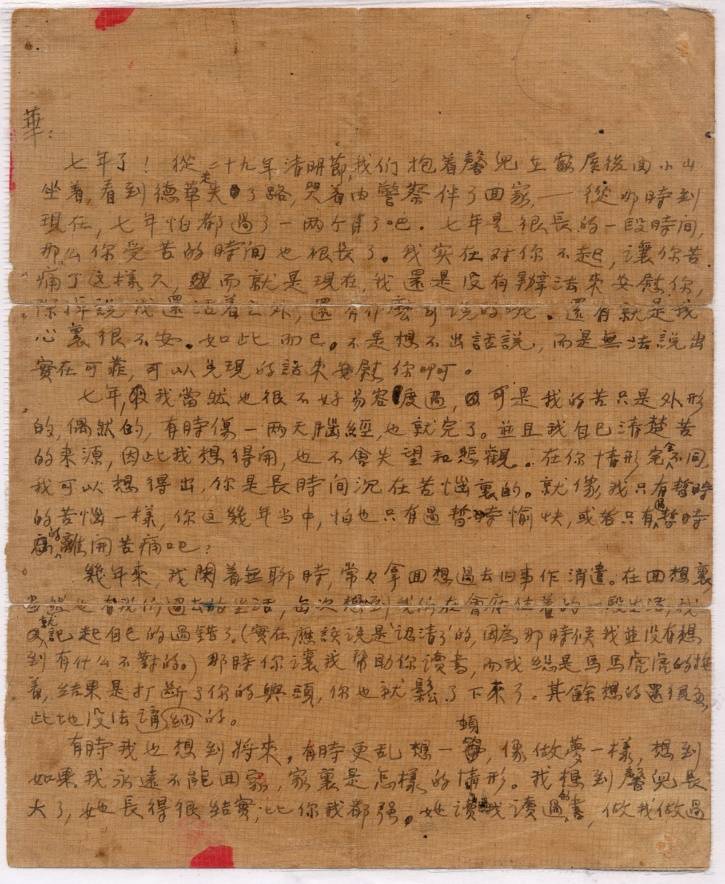 華：
七年了！從二十九年清明節我們抱着馨兒在龍屋後面小山
坐着，看到德華走失了路，哭着由警察伴了回家，——從那時到
現在，七年怕都過了一兩个月了吧。七年是很長的一段時间，
那么你受苦的時间也很長了。我实在对你不起，讓你苦
痛了这樣久，然而就是現在，我還是没有辦法來安慰你，
除掉説我還活着之外，還有什麼可说的呢。還有就是我
心裏很不安。如此而已。不是想不出話説，而是無法説出
實在可靠，可以兑現的話來安慰你啊。
七年，我當然也很不好易容度過，可是我的苦只是外形
的，偶然的，有時傷一兩天腦經，也就完了。並且我自己清楚苦
的來源，因此我想得開，也不會失望和悲觀。在你情形完全不同
我可以想得出，你是長時间沉在苦惱裏的。就像我只有暫時
的苦惱一樣，你这幾年当中，怕也只有過暫時愉快，或若只有過暫時
的離開苦痛吧？
幾年來，我閑着無聊時，常々拿回想過去旧事作消遣。在回想裏
当然也有我们過去的生活，每次想到我们在會府住着的一段生活，我
就記起自己的過錯了。（實在應該说是"認清了"的，因為那時候我並没有想
到有什么不對的。）那時你讓我幫助你讀書，而我總是馬馬虎虎的拖
着，結果是打断了你的興頭，你也就鬆了下來了。其餘想的還很多，
此地没法講的。
有時我也想到將來。有時更乱想一頓，像做夢一樣，想到
如果我永遠不能回家，家裏是怎樣的情形。我想到馨兒長
大了，她長得很結實，比你我都强。她讀我讀過的書，做我做過